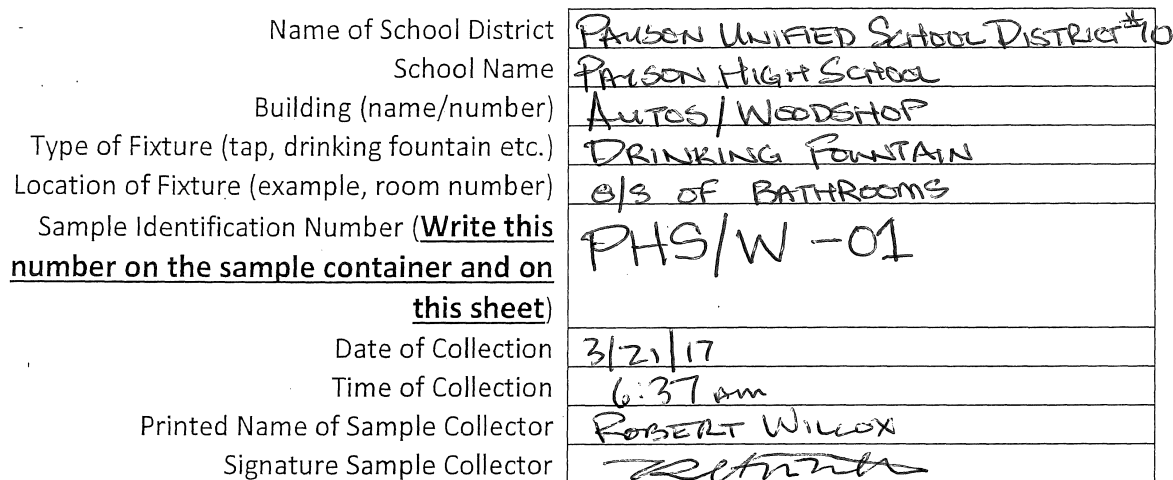 Name of School District PAYSON UNIFIED SCHOOL DISTRICT #10
School Name PAYSON HIGH SCHOOL
Building (name/number) AUTOS/WOODSHOP
Type of Fixture (tap, drinking fountain etc.) DRINKING FOUNTAIN
Location of Fixture (example, room number) O/S OF BATHROOMS
Sample Identification Number (Write this PHS/W-01
number on the sample container and on
this sheet)
Date of Collection 3/21/17
Time of Collection 6:37 am
Printed Name of Sample Collector ROBERT WILCOX
Signature Sample Collector